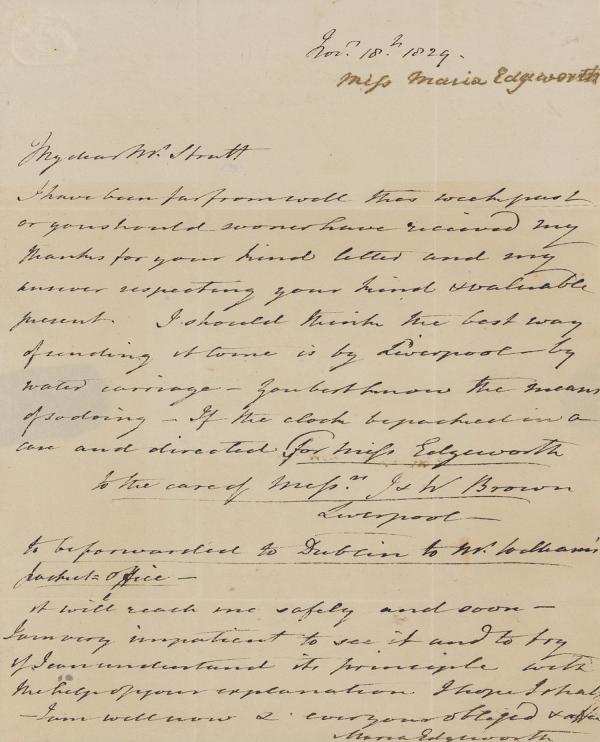 Novr. 18th. 1829.
Miss Maria Edgeworth
My dear Mr. Strutt
I have been far from well this week past
or you should sooner have recieved my
thanks for your kind letter and my
answer respecting your kind & valuable
present. I should think the best way
of sending it to me is by Liverpool – by
water carriage – You best know the means
of so doing – If the clock be packed in a
case and directed for Miss Edgeworth
to the care of Messrs. Js W Brown
Liverpool –
to be forwarded to Dublin to Mr. William's
packet office –
it will reach me safely and soon –
I am very impatient to see it and to try
if I can understand its principle with
the help of your explanation I hope I shall
– I am well now & ever your obliged &
Maria Edgeworth